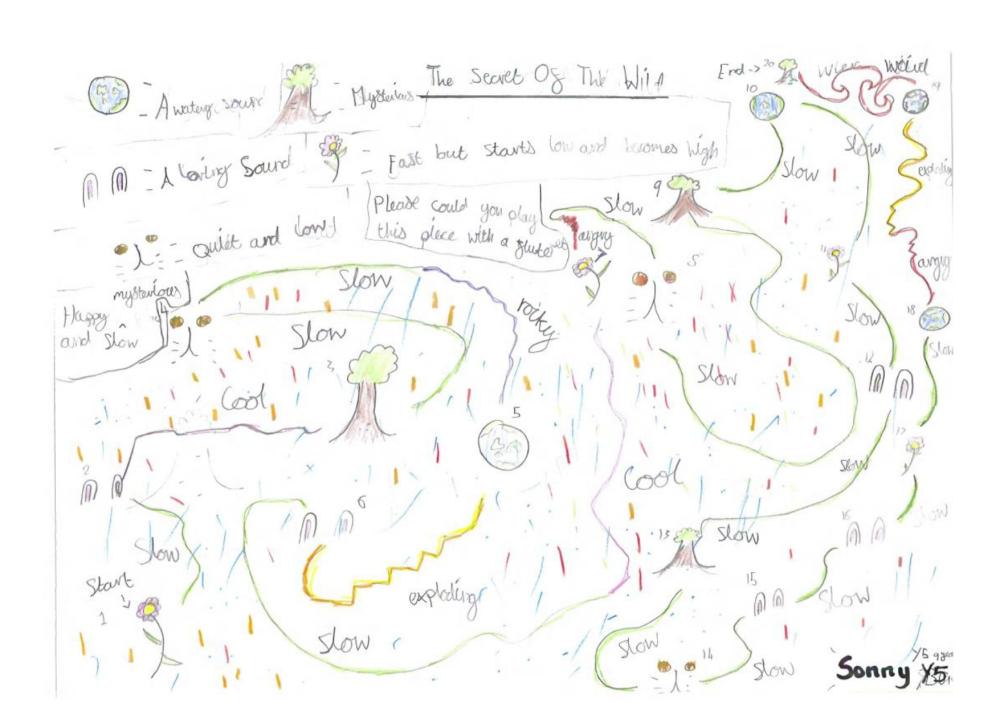 The Secret Of The Wild
= A watery sound
= Mysterious
= A loving Sound
= Fast but starts low and becomes high
= Quiet and Low!
Please could you play
this piece with a flute
End -> 20
Weird
10
19
Slow
Slow
exploding
9
Slow
angry
7
8
11
angry
18
mysterious
Slow
Happy
and Slow
4
Slow
rocky
Slow
Slow
12
3
Slow
Cool
5
17
2
Slow
Cool
6
Slow
16
13
Slow
Slow
Start
1
exploding
15
Slow
Slow
Slow
14
Slow
Sonny Y5